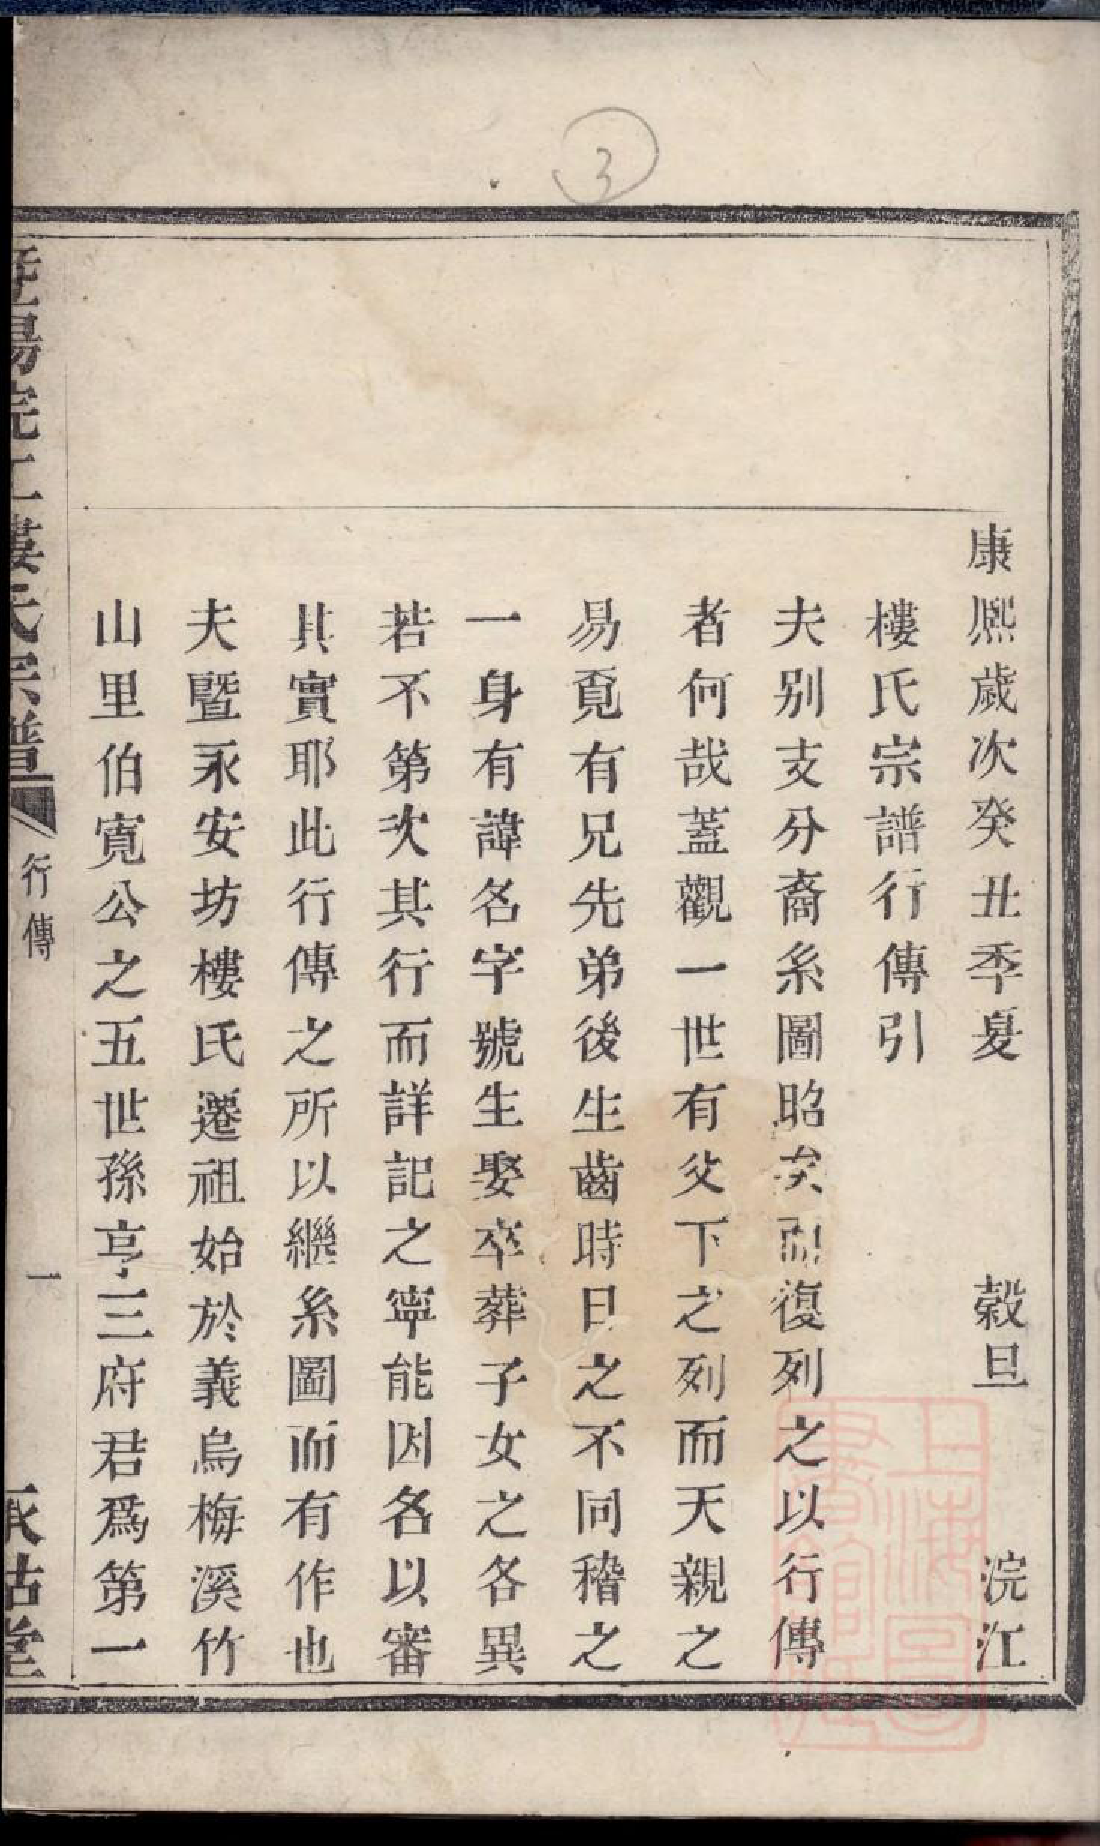 3
康熈歲次癸丑季夏 穀旦 浣江
樓氏宗譜行傳引
夫别支分裔系圖昭矣而復列之以行傳
者何哉蓋觀一世有父下之列而天親之
易覔有兄先弟後生齒時日之不同稽之
一身有諱名字號生娶卒葬子女之各異
若不第次其行而詳記之寧能因名以審
其實耶此行傳之所以繼系圖而有作也
夫暨永安坊樓氏遷祖始於義烏梅溪竹
山里伯寛公之五世孫亨三府君爲第一
暨陽浣江樓氏宗譜 行傳 一 堂
上海圖書館藏